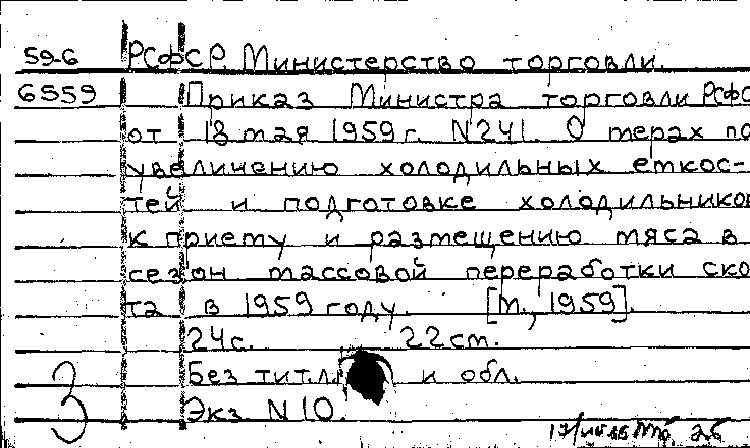 59-6 РСФСР. Министерство торговли.
6559 Приказ Министра торговли РСФС
от 18 мая 1959 г. N 241. О мерах по
увеличению холодильных емкос-
тей и подготовке холодильников
к приему и размещению мяса в
сезон массовой переработки ско-
та в 1959 году. [М., 1959].
24 с. 22 см.
Без тит. л. и обл.
Экз N 10.
3